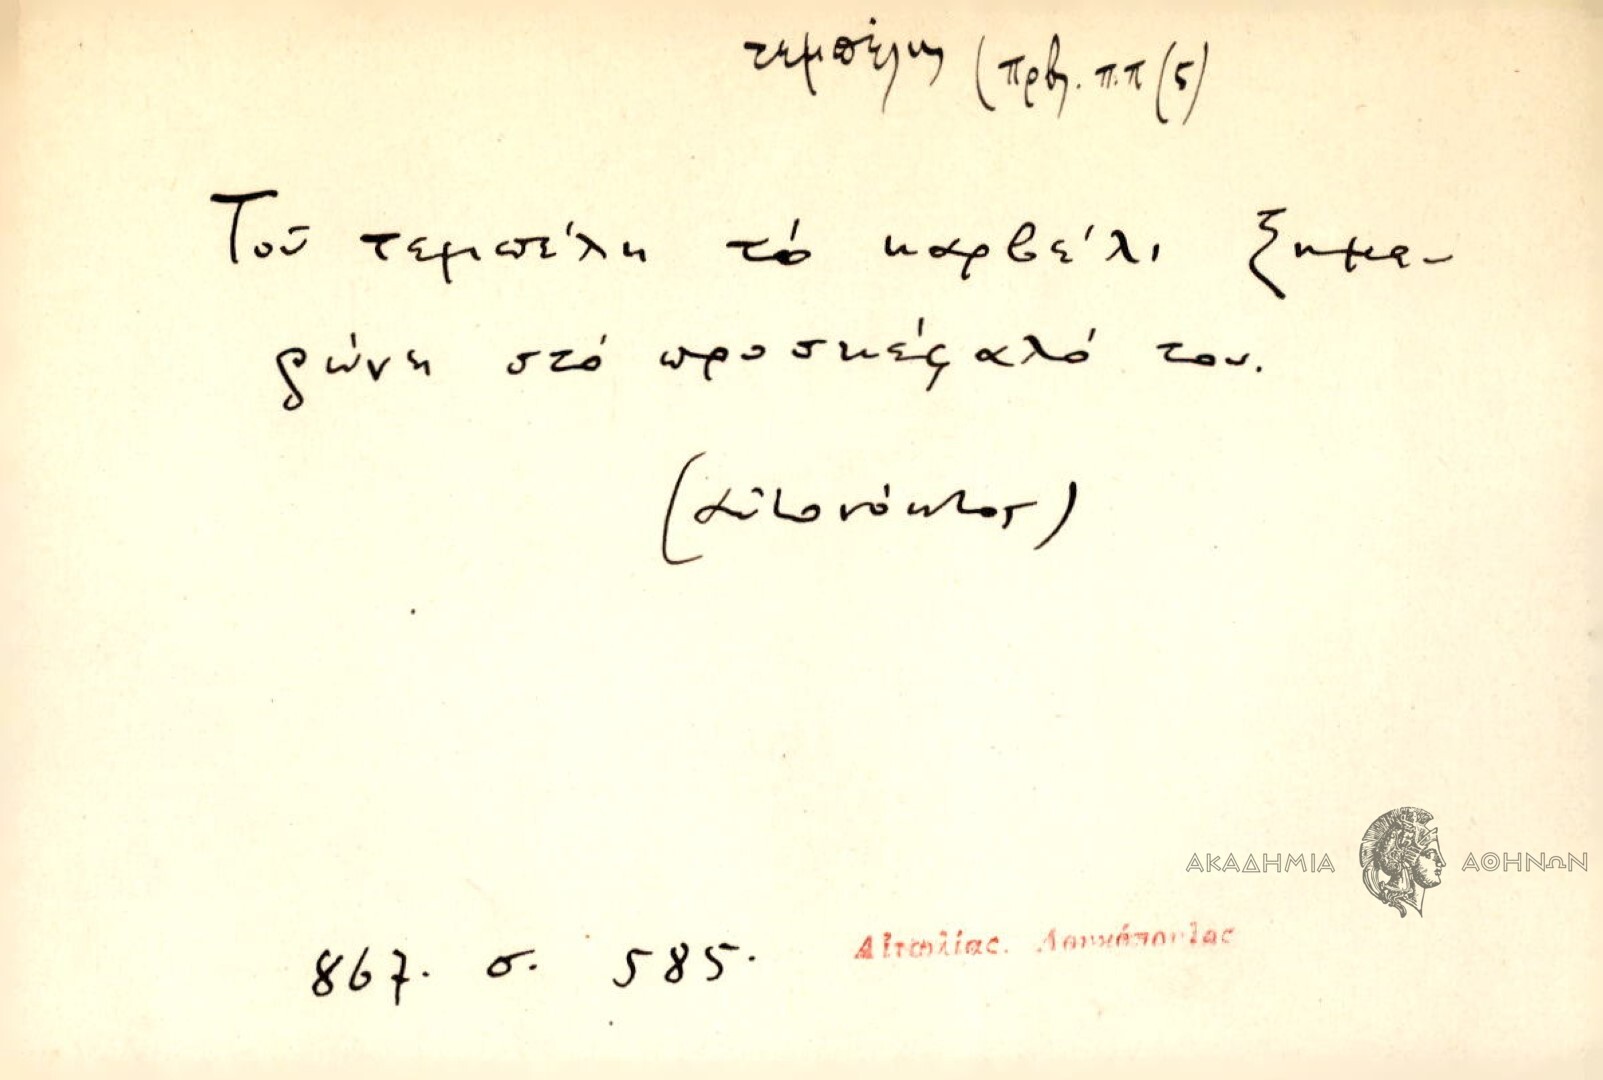 τεμπέλης (πρβλ. π.π (5)
Τοῦ τεμπέλη τό καρβέλι ξημε-
ρώνει στό προσκέφαλό του.
(Αἰτωνόκτος)
ΑΚΑΔΗΜΙΑ ΑΘΗΝΩΝ
867. σ. 585. Αἰτωλίας. Λουκόπουλος